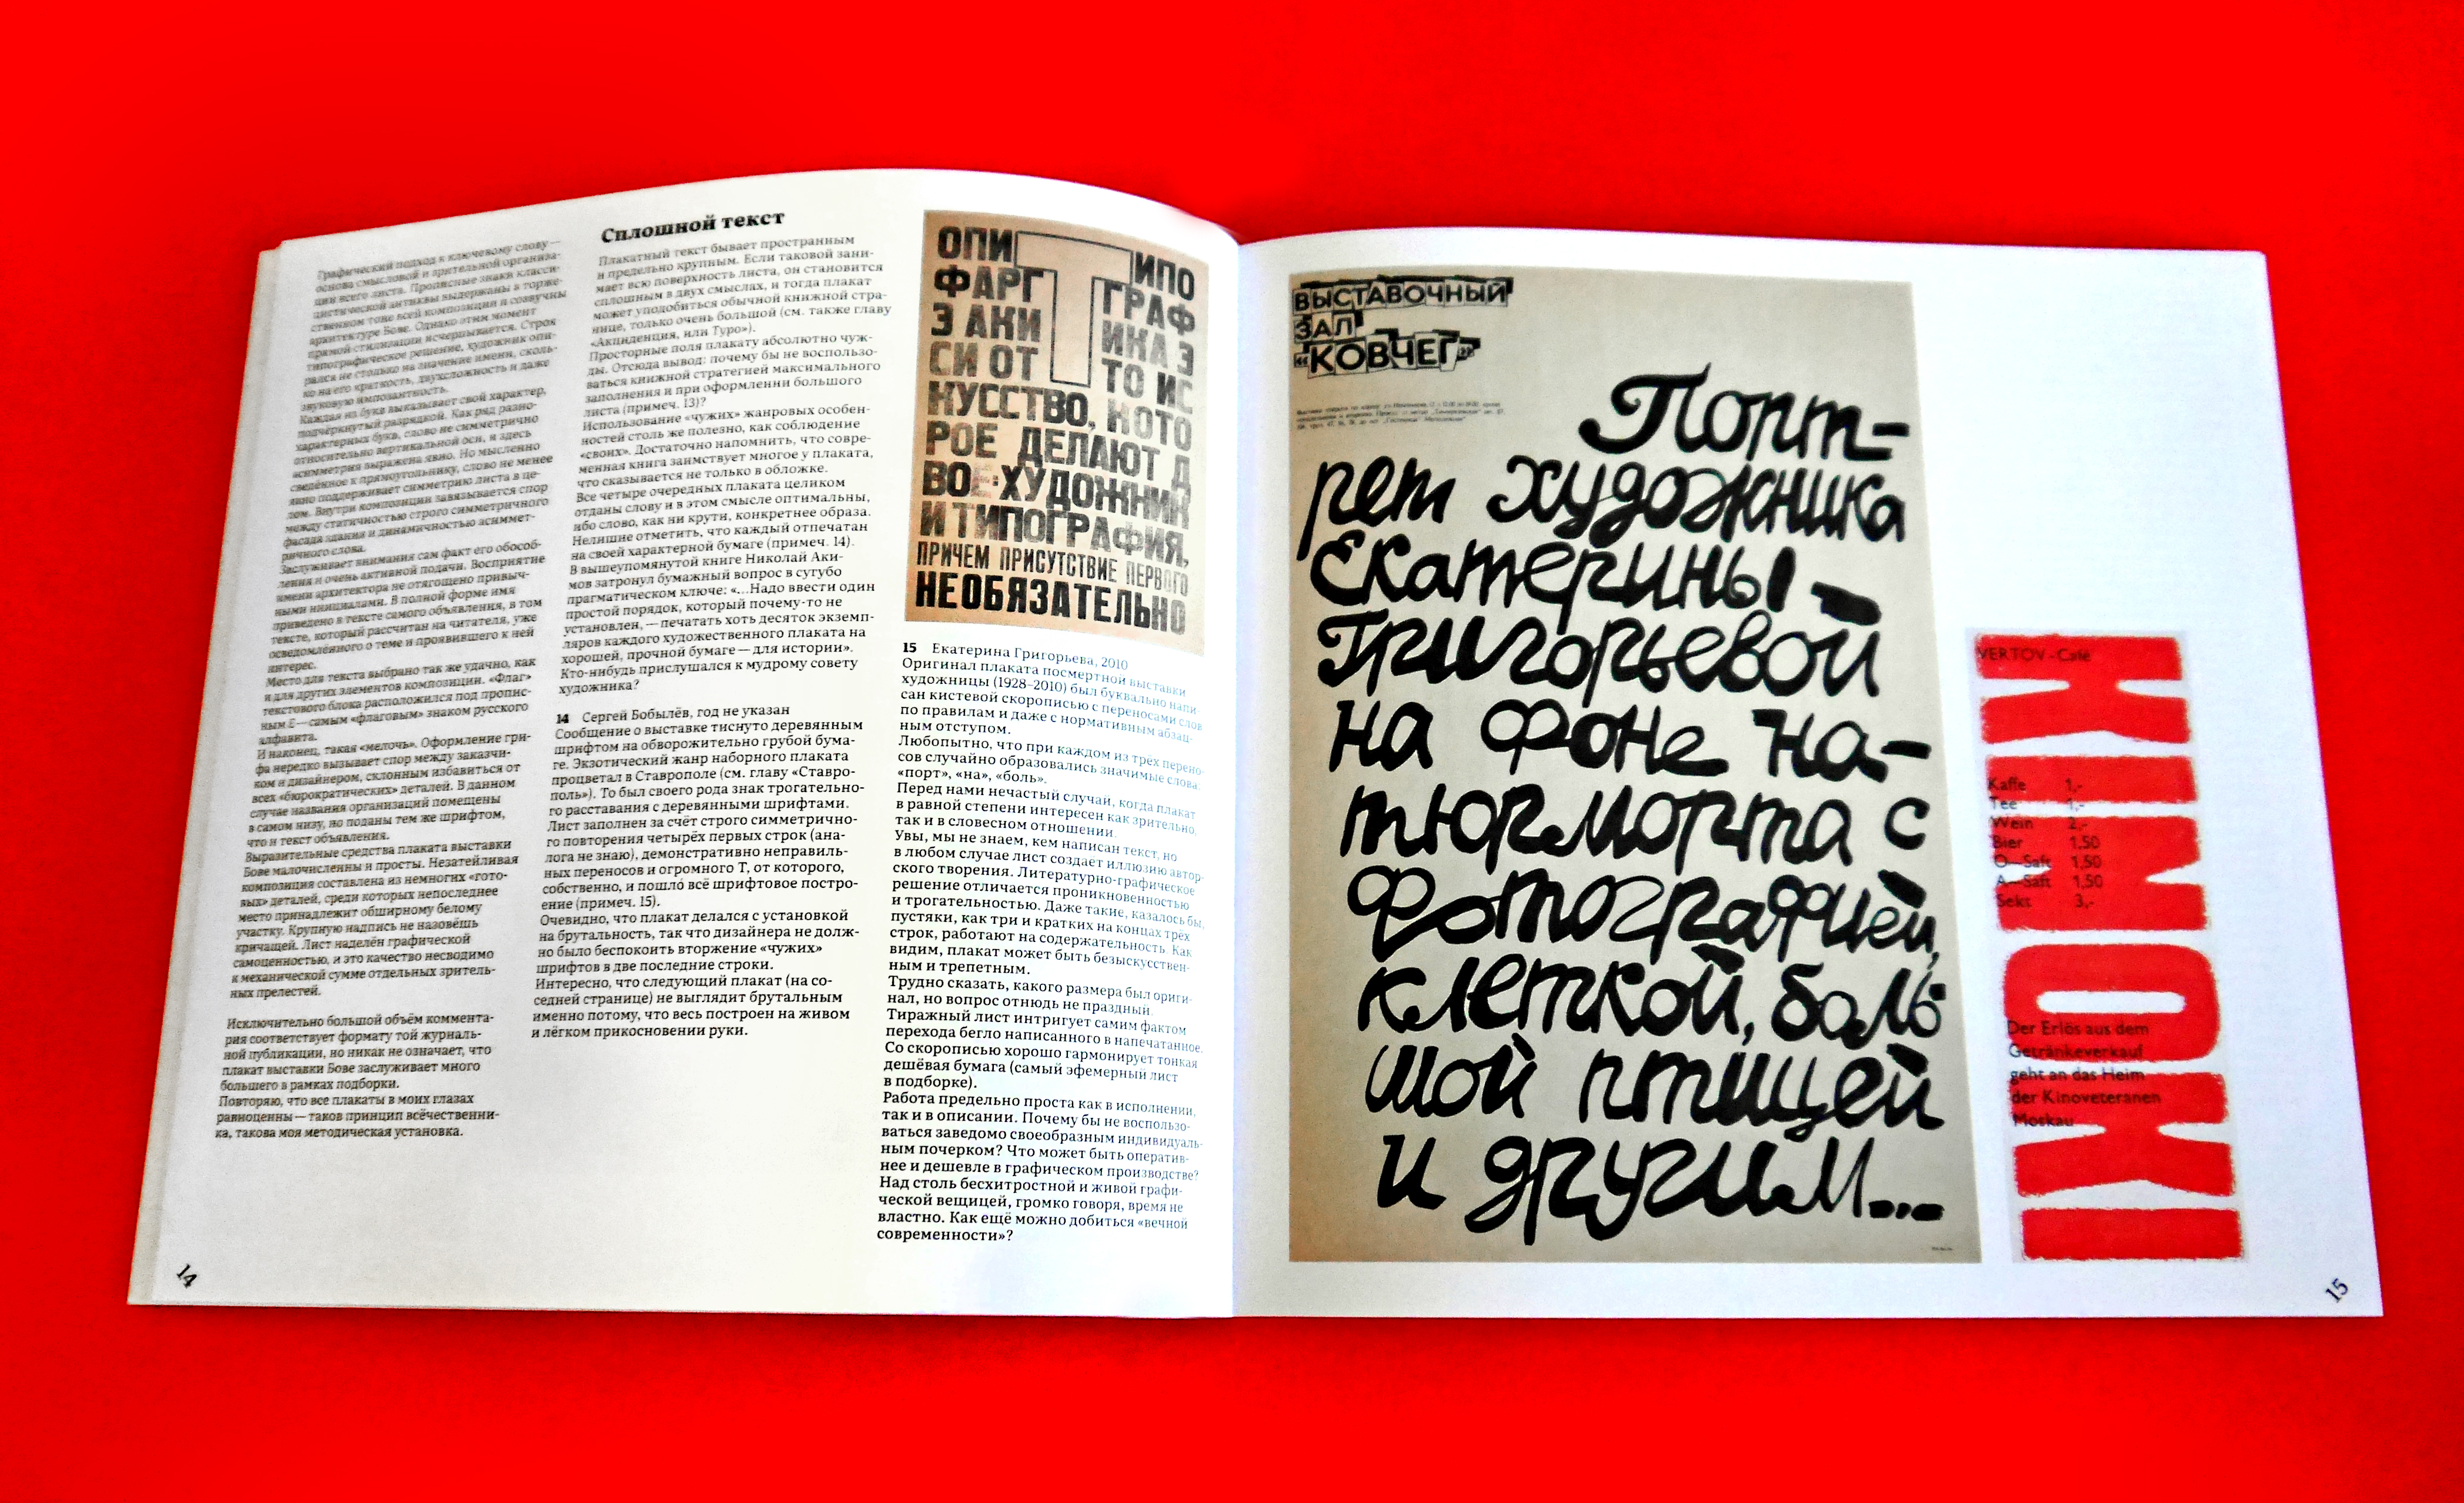 Графический подход к ключевому слову —
основа смысловой и зрительной организа-
ции всего листа. Прописные знаки класси-
цистической антиквы выдержаны в торже-
ственном тоне всей композиции и созвучны
архитектуре Бове. Однако этим момент
прямой стилизации исчерпывается. Строя
типографическое решение, художник опи-
рался не столько на значение имени, сколь-
ко на его краткость, двухсложность и даже
звуковую импозантность.
Каждая из букв выказывает свой характер,
подчёркнутый разрядкой. Как ряд разно-
характерных букв, слово не симметрично
относительно вертикальной оси, и здесь
асимметрия выражена явно. Но мысленно
сведённое к прямоугольнику, слово не менее
явно поддерживает симметрию листа в це-
лом. Внутри композиции завязывается спор
между статичностью строго симметричного
фасада здания и динамичностью асиммет-
ричного слова.
Заслуживает внимания сам факт его обособ-
ления и очень активной подачи. Восприятие
имени архитектора не отягощено привыч-
ными инициалами. В полной форме имя
приведено в тексте самого объявления, в том
тексте, который рассчитан на читателя, уже
осведомлённого о теме и проявившего к ней
интерес.
Место для текста выбрано так же удачно, как
и для других элементов композиции. «Флаг»
текстового блока расположился под пропис-
ным Е — самым «флаговым» знаком русского
алфавита.
И наконец, такая «мелочь». Оформление гри-
фа нередко вызывает спор между заказчи-
ком и дизайнером, склонным избавиться от
всех «бюрократических» деталей. В данном
случае названия организаций помещены
в самом низу, но поданы тем же шрифтом,
что и текст объявления.
Выразительные средства плаката выставки
Бове малочисленны и просты. Незатейливая
композиция составлена из немногих «гото-
вых» деталей, среди которых непоследнее
место принадлежит обширному белому
участку. Крупную надпись не назовёшь
кричащей. Лист наделён графической
самоценностью, и это качество несводимо
к механической сумме отдельных зритель-
ных прелестей.
Исключительно большой объём коммента-
рия соответствует формату той журналь-
ной публикации, но никак не означает, что
плакат выставки Бове заслуживает много
большего в рамках подборки.
Повторяю, что все плакаты в моих глазах
равноценны — таков принцип всёчественни-
ка, такова моя методическая установка.
14
Сплошной текст
Плакатный текст бывает пространным
и предельно крупным. Если таковой зани-
мает всю поверхность листа, он становится
сплошным в двух смыслах, и тогда плакат
может уподобиться обычной книжной стра-
нице, только очень большой (см. также главу
«Акциденция, или Typo»).
Просторные поля плакату абсолютно чуж-
ды. Отсюда вывод: почему бы не воспользо-
ваться книжной стратегией максимального
заполнения и при оформлении большого
листа (примеч. 13)?
Использование «чужих» жанровых особен-
ностей столь же полезно, как соблюдение
«своих». Достаточно напомнить, что совре-
менная книга заимствует многое у плаката,
что сказывается не только в обложке.
Все четыре очередных плаката целиком
отданы слову и в этом смысле оптимальны,
ибо слово, как ни крути, конкретнее образа.
Нелишне отметить, что каждый отпечатан
на своей характерной бумаге (примеч. 14).
В вышеупомянутой книге Николай Аки-
мов затронул бумажный вопрос в сугубо
прагматическом ключе: «...Надо ввести один
простой порядок, который почему-то не
установлен, — печатать хоть десяток экземп-
ляров каждого художественного плаката на
хорошей, прочной бумаге — для истории».
Кто-нибудь прислушался к мудрому совету
художника?
14 Сергей Бобылёв, год не указан
Сообщение о выставке тиснуто деревянным
шрифтом на обворожительно грубой бума-
ге. Экзотический жанр наборного плаката
процветал в Ставрополе (см. главу «Ставро-
поль»). То был своего рода знак трогательно-
го расставания с деревянными шрифтами.
Лист заполнен за счёт строго симметрично-
го повторения четырёх первых строк (ана-
лога не знаю), демонстративно неправиль-
ных переносов и огромного Т, от которого,
собственно, и пошло́ всё шрифтовое постро-
ение (примеч. 15).
Очевидно, что плакат делался с установкой
на брутальность, так что дизайнера не долж-
но было беспокоить вторжение «чужих»
шрифтов в две последние строки.
Интересно, что следующий плакат (на со-
седней странице) не выглядит брутальным
именно потому, что весь построен на живом
и лёгком прикосновении руки.
ОПИ Т ИПО
ФАРГ ГРАФ
З АКИ ИКА Э
СИ ОТ ТО ИС
КУССТВО, КОТО
РОЕ ДЕЛАЮТ Д
ВОЕ: ХУДОЖНИК
И ТИПОГРАФИЯ,
ПРИЧЕМ ПРИСУТСТВИЕ ПЕРВОГО
НЕОБЯЗАТЕЛЬНО
15 Екатерина Григорьева, 2010
Оригинал плаката посмертной выставки
художницы (1928–2010) был буквально напи-
сан кистевой скорописью с переносами слов
по правилам и даже с нормативным абзац-
ным отступом.
Любопытно, что при каждом из трёх перено-
сов случайно образовались значимые слова:
«порт», «на», «боль».
Перед нами нечастый случай, когда плакат
в равной степени интересен как зрительно,
так и в словесном отношении.
Увы, мы не знаем, кем написан текст, но
в любом случае лист создает иллюзию автор-
ского творения. Литературно-графическое
решение отличается проникновенностью
и трогательностью. Даже такие, казалось бы,
пустяки, как три и кратких на концах трёх
строк, работают на содержательность. Как
видим, плакат может быть безыскусствен-
ным и трепетным.
Трудно сказать, какого размера был ориги-
нал, но вопрос отнюдь не праздный.
Тиражный лист интригует самим фактом
перехода бегло написанного в напечатанное.
Со скорописью хорошо гармонирует тонкая
дешёвая бумага (самый эфемерный лист
в подборке).
Работа предельно проста как в исполнении,
так и в описании. Почему бы не воспользо-
ваться заведомо своеобразным индивидуаль-
ным почерком? Что может быть оператив-
нее и дешевле в графическом производстве?
Над столь бесхитростной и живой графи-
ческой вещицей, громко говоря, время не
властно. Как ещё можно добиться «вечной
современности»?
ВЫСТАВОЧНЫЙ
ЗАЛ
«КОВЧЕГ»
Порт-
рет художника
Екатерины
Григорьевой
на фоне на-
тюрморта с
фотографией,
клеткой, боль-
шой птицей
и другим...
VERTOV-Café
KINOKI
Kaffe 1,-
Tee 1,-
Wein 2,-
Bier 1,50
O-Saft 1,50
A-Saft 1,50
Sekt 3,-
Der Erlös aus dem
Getränkeverkauf
geht an das Heim
der Kinoveteranen
Moskau
15